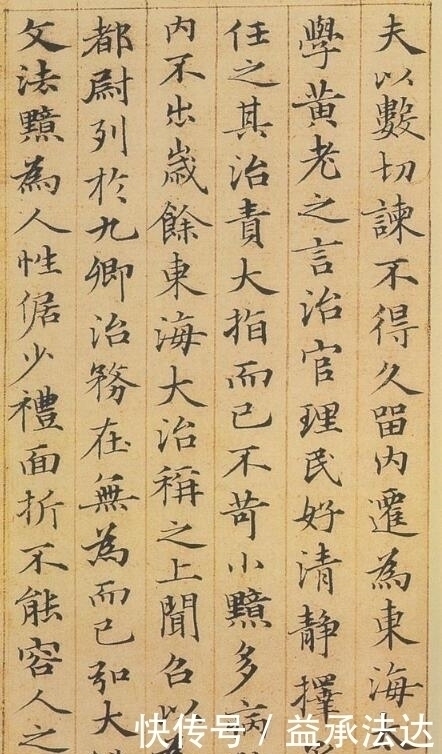 夫以數切諫不得久留内遷為東海
學黄老之言治官理民好清静擇
任之其治責大指而已不苛小黯多病
内不出嵗餘東海大治稱之上聞召以
都尉列於九卿治務在無為而已弘大
文法黯為人性倨少禮面折不能容人之
快传号 / 益承法达